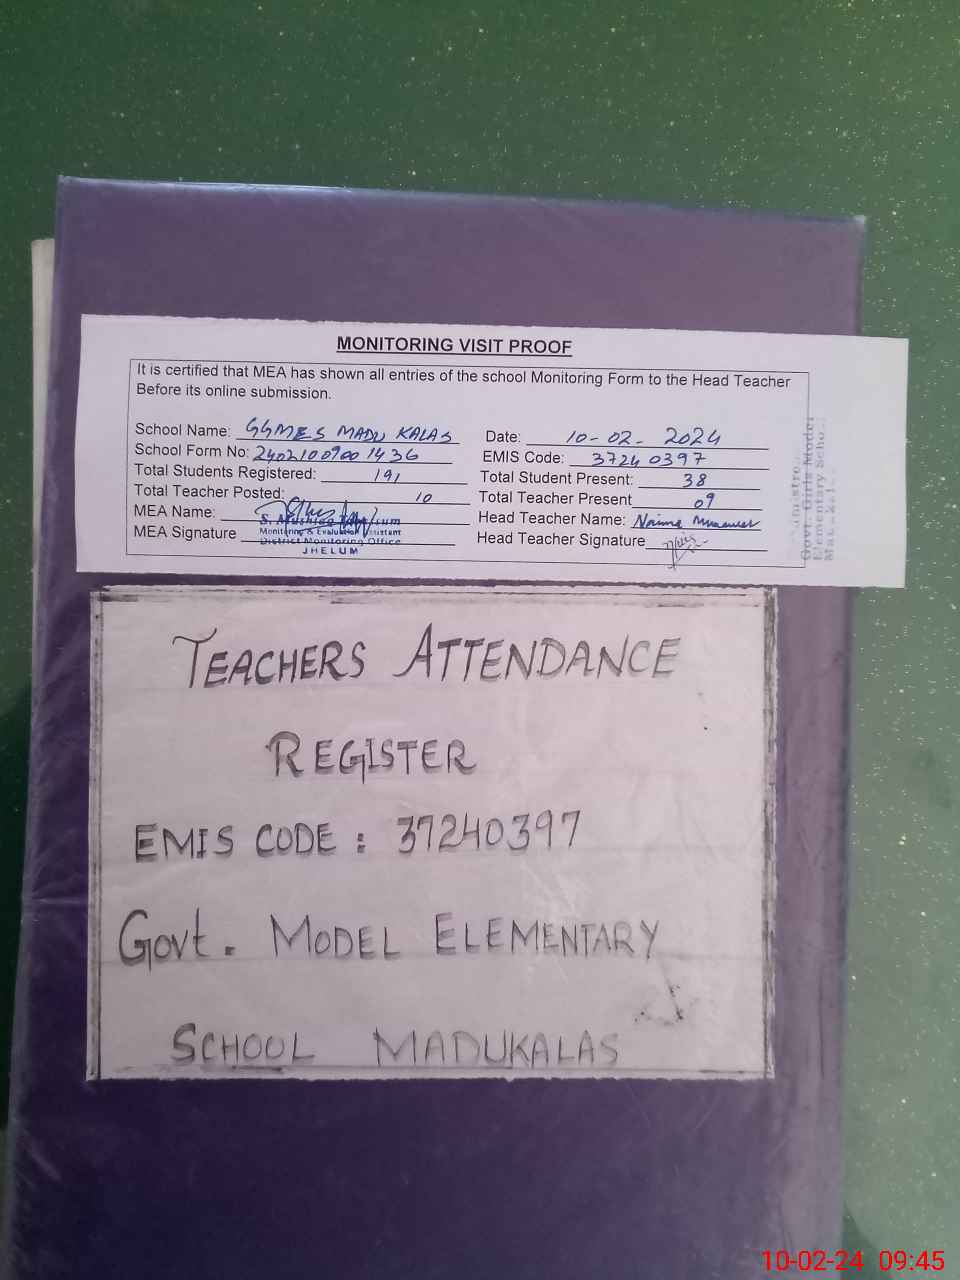 MONITORING VISIT PROOF
It is certified that MEA has shown all entries of the school Monitoring Form to the Head Teacher
Before its online submission.
School Name: GGMES MADU KALAS
Date: 10-02-2024
School Form No: 2402100900 1436
EMIS Code: 37240397
Total Students Registered: 191
Total Student Present: 38
Total Teacher Posted: 10
Total Teacher Present 09
MEA Name:
Head Teacher Name: Naima
MEA Signature
Head Teacher Signature
Monitoring & Evaluation Assistant
District Monitoring Office
JHELUM
Govt. Girls Model
Elementary School
TEACHERS ATTENDANCE
REGISTER
EMIS CODE : 37240397
Govt. MODEL ELEMENTARY
SCHOOL MADUKALAS
10-02-24 09:45